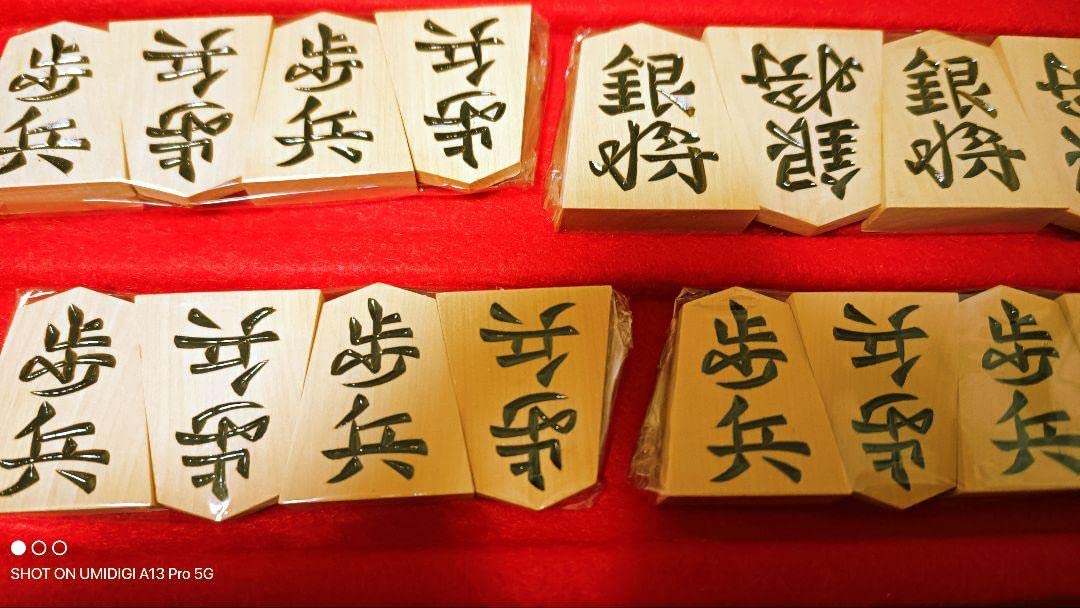 歩兵 歩兵 歩兵 歩兵
銀将 銀将 銀将
歩兵 歩兵 歩兵 歩兵
歩兵 歩兵 歩兵
SHOT ON UMIDIGI A13 Pro 5G